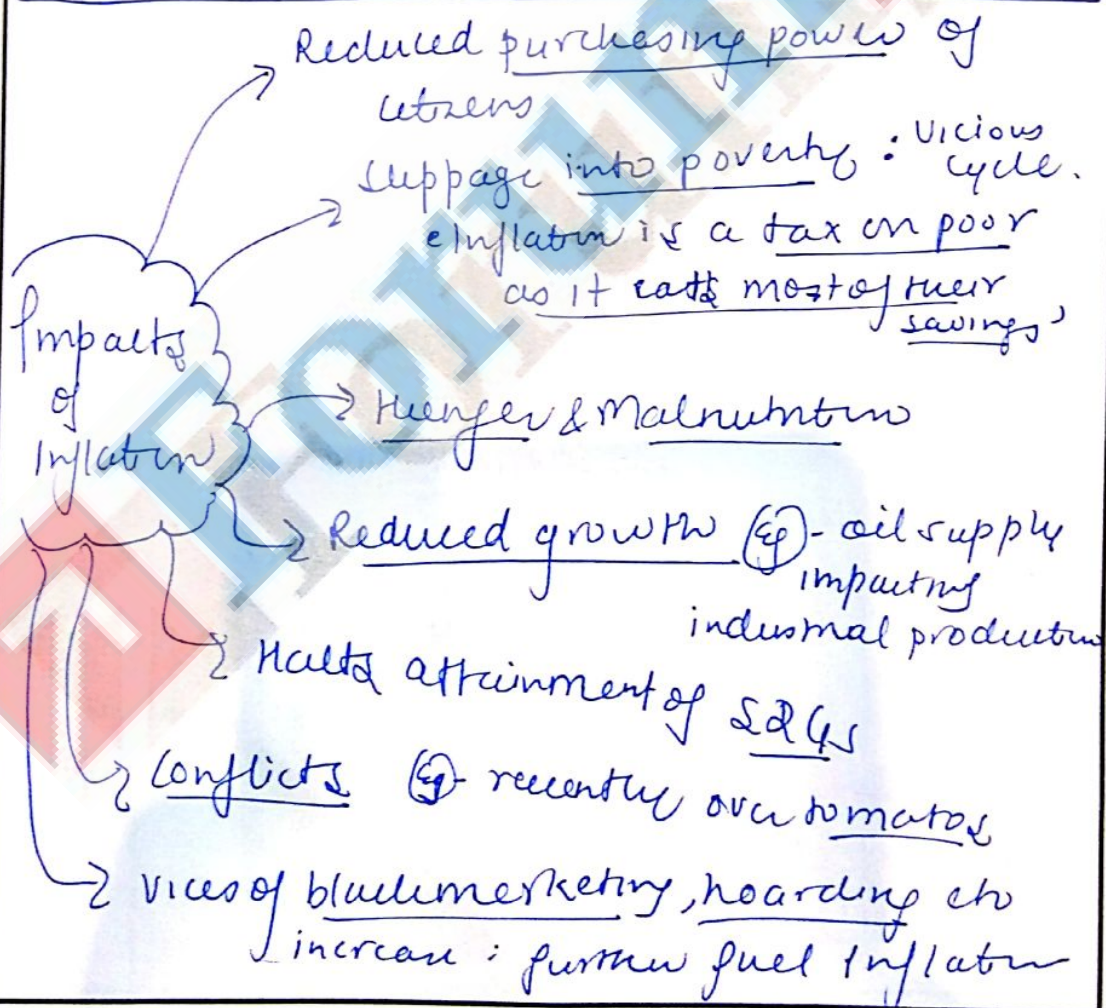 Reduced purchasing power of
citizens
slippage into poverty : vicious
cycle.
'Inflation is a tax on poor
as it eats most of their
savings'
Impacts
of
Inflation
Hunger & Malnutrition
Reduced growth eg - oil supply
impacting
industrial production
Halts attainment of SDGs
Conflicts eg - recently over tomatos
vices of blackmarketing, hoarding etc
increase : further fuel Inflation
Forum